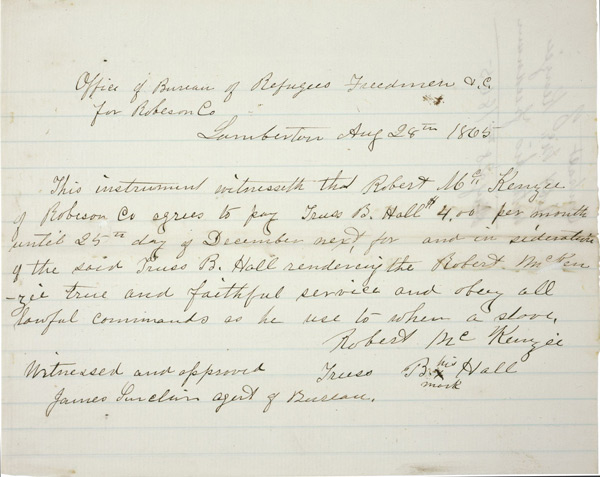 Office of Bureau of Refugees Freedmen &.C.
for Robeson Co
Lumberton Aug 28th 1865
This instrument witnesseth that Robert Mc Kenzie
of Robeson Co agrees to pay Truss B. Hall $4,00 per month
until 25th day of December next, for and in sideration
of the said Truss B. Hall rendering the Robert McKen
-zie true and faithful service and obey all
lawful commands as he use to when a slave.
Robert Mc Kenzie
Witnessed and approved Truss B. his x mark Hall
James Sinclair agent of Bureau.